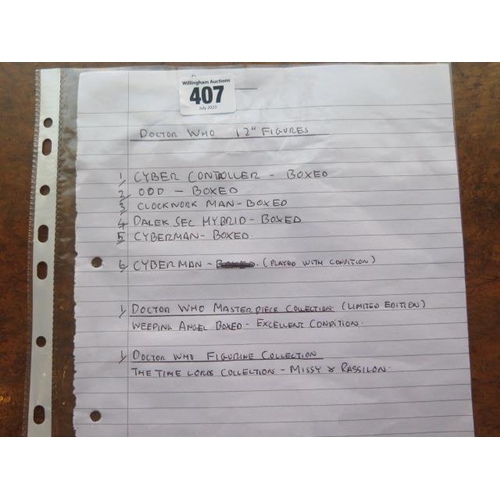 Willingham Auctions
407
July 2023
DOCTOR WHO 12" FIGURES
1/ CYBER CONTROLLER - BOXED
2/ OOD - BOXED
3/ CLOCKWORK MAN - BOXED
4/ DALEK SEC HYBRID - BOXED
5/ CYBERMAN - BOXED
6/ CYBERMAN - BOXED. (PLAYED WITH CONDITION)
1/ DOCTOR WHO MASTERPIECE COLLECTION (LIMITED EDITION)
WEEPING ANGEL BOXED - EXCELLENT CONDITION.
1/ DOCTOR WHO FIGURINE COLLECTION
THE TIME LORDS COLLECTION - MISSY & RASSILON.